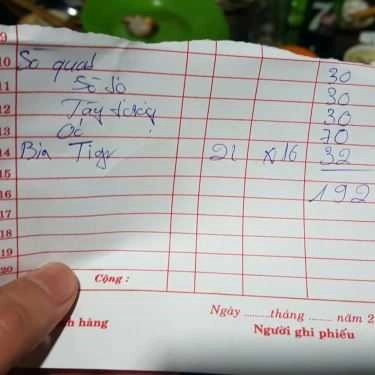 9
10 Sò quạt 30
11 Sò dó 30
12 Tây tượng 30
13 Ốc 70
14 Bia Tiger 2L x16 32
15
16 192
17
18
19
20 Cộng :
Ngày ..........tháng ........ năm 2
hàng Người ghi phiếu